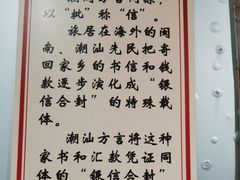 以“批”称“信”。
旅居在海外的闽
南、潮汕先民把寄
回家乡的书信和钱
款逐步演化成“银
信合封”的特殊载
体。
潮汕方言将这种
家书和汇款凭证同
体的“银信合封”